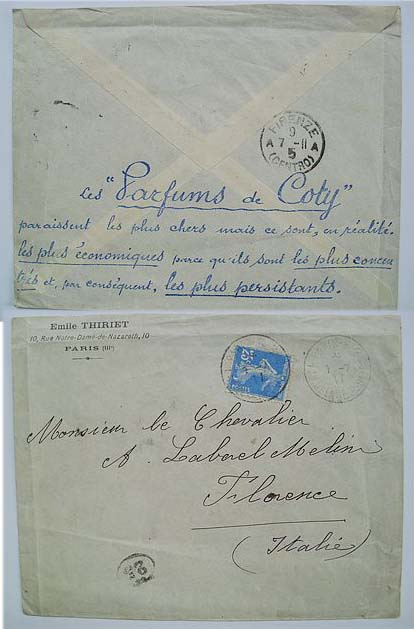 FIRENZE
9
A 7 - 11 A
5
(CENTRO)
Les "Parfums de Coty"
paraissent les plus chers mais ce sont, en réalité.
les plus économiques parce qu'ils sont les plus concen
trés et, par conséquent, les plus persistants.
Emile THIRIET
10, Rue Notre-Dame-de-Nazareth, 10
PARIS (IIIe)
25
Monsieur le Chevalier
A. Laborel Melini
Florence
(Italie)